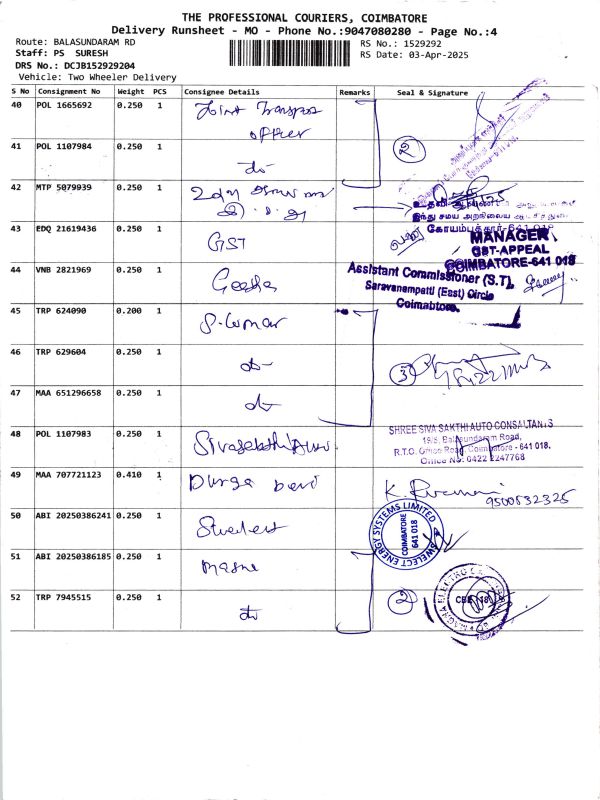 THE PROFESSIONAL COURIERS, COIMBATORE
Delivery Runsheet - MO - Phone No.:9047080280 - Page No.:4
Route: BALASUNDARAM RD
RS No.: 1529292
Staff: PS SURESH
RS Date: 03-Apr-2025
DRS No.: DCJB152929204
Vehicle: Two Wheeler Delivery
S No Consignment No Weight PCS Consignee Details Remarks Seal & Signature
40 POL 1665692 0.250 1 Joint Transport
officer
41 POL 1107984 0.250 1 do
42 MTP 5079939 0.250 1
இந்து சமய அறநிலைய
கோயம்புத்தூர்-641 018
43 EDQ 21619436 0.250 1 GST
MANAGER
GST-APPEAL
COIMBATORE-641 018
44 VNB 2821969 0.250 1 Geetha
Assistant Commissioner (S.T),
Saravanampatti (East) Circle
Coimabtore.
45 TRP 624090 0.200 1 S. Kumar
46 TRP 629604 0.250 1 do
3
47 MAA 651296658 0.250 1 do
48 POL 1107983 0.250 1
SHREE SIVA SAKTHI AUTO CONSULTANTS
Balasundaram Road,
R.T.O. Office Road, Coimbatore - 641 018.
Office No: 0422 2247768
49 MAA 707721123 0.410 1 Durga devi
9500532325
50 ABI 20250386241 0.250 1
SWELECT ENERGY SYSTEMS LIMITED
COIMBATORE
641 018
51 ABI 20250386185 0.250 1
52 TRP 7945515 0.250 1 do
2